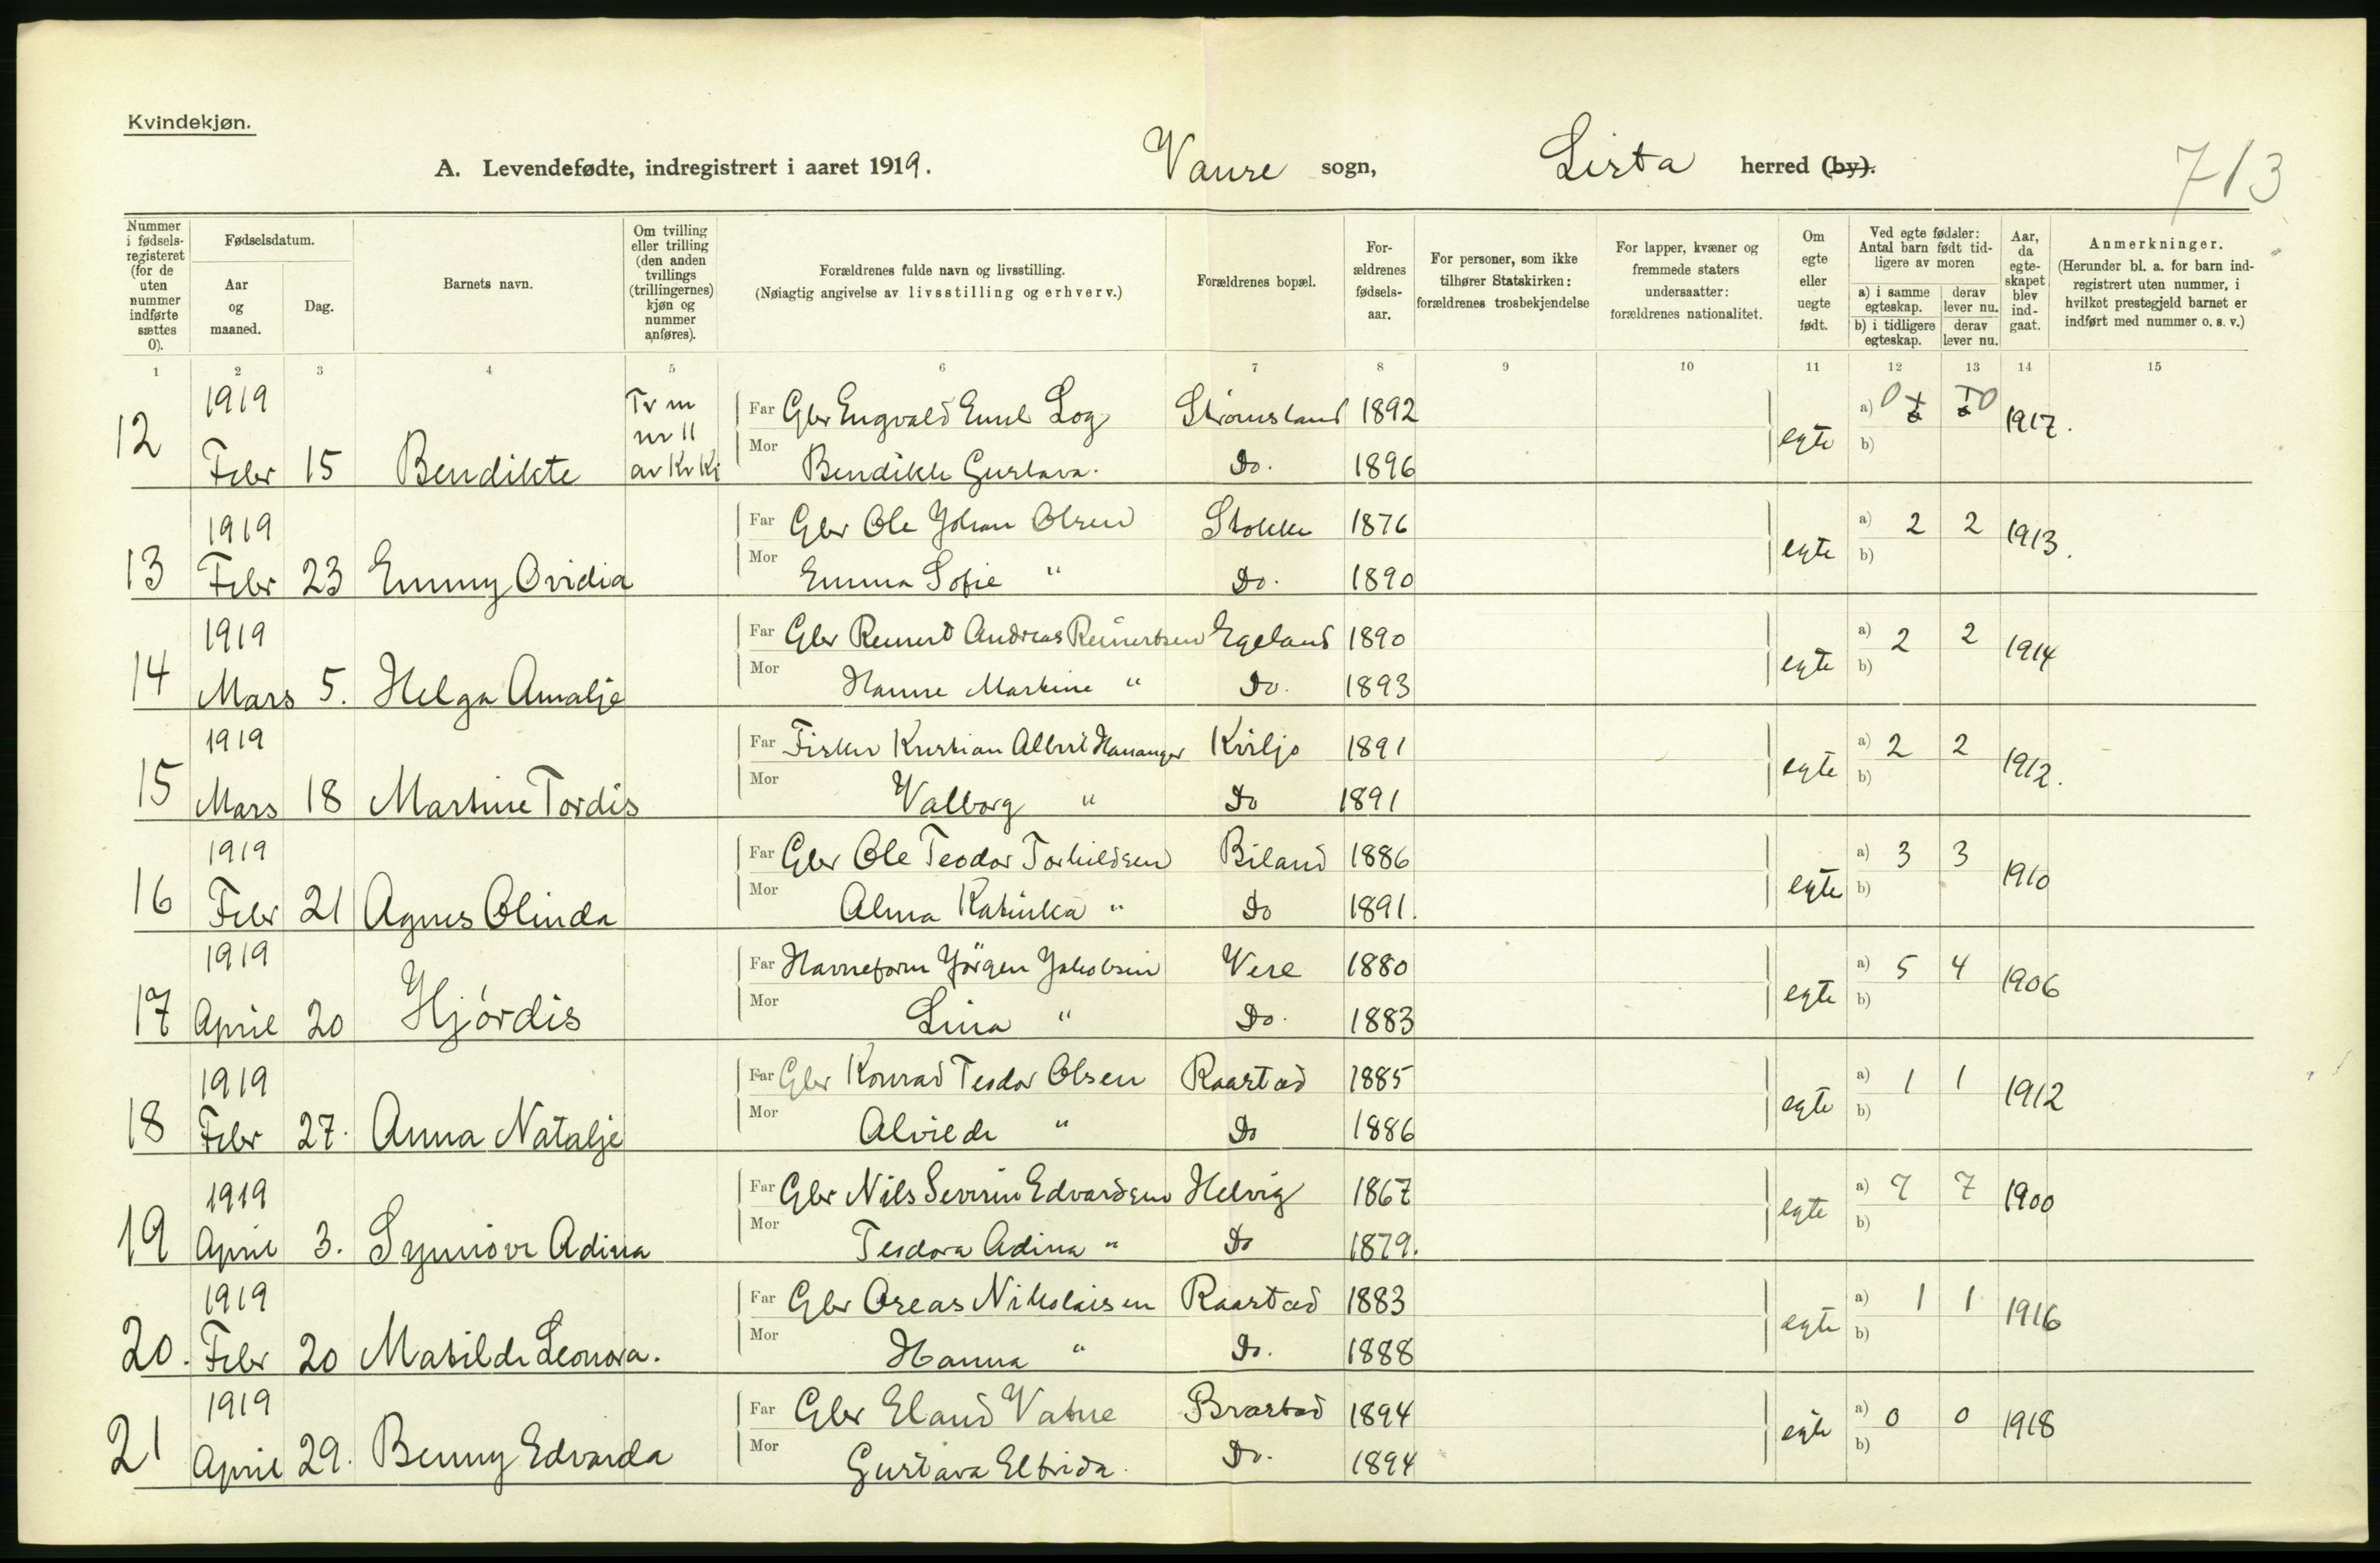 Kvindekjøn.
A. Levendefødte, indregistrert i aaret 1919. Vanse sogn, Lista herred (by).
713
Nummer i fødsels-registeret (for de uten nummer indførte sættes 0).
Fødselsdatum.
Aar og maaned.
Dag.
Barnets navn.
Om tvilling eller trilling (den anden tvillings (trillingernes) kjøn og nummer anføres).
Forældrenes fulde navn og livsstilling.
(Nøiagtig angivelse av livsstilling og erhverv.)
Forældrenes bopæl.
For-ældrenes fødsels-aar.
For personer, som ikke tilhører Statskirken: forældrenes trosbekjendelse
For lapper, kvæner og fremmede staters undersaatter: forældrenes nationalitet.
Om egte eller uegte født.
Ved egte fødsler: Antal barn født tid-ligere av moren
a) i samme egteskap. derav lever nu.
b) i tidligere egteskap. derav lever nu.
Aar, da egte-skapet blev ind-gaat.
Anmerkninger.
(Herunder bl. a. for barn ind-registrert uten nummer, i hvilket prestegjeld barnet er indført med nummer o. s. v.)
1 2 3 4 5 6 7 8 9 10 11 12 13 14 15
1919 Tv m Far Gbr Engvald Emil Log Strømsland 1892 a) 0 0
12 nr 11 Mor egte b) 1917.
Febr 15 Bendikte av Kv Kj Bendikte Gustava. Do. 1896
1919 Far Gbr Ole Johan Olsen Stokke 1876 a) 2 2
13 Mor egte b) 1913.
Febr 23 Emmy Ovidia Emma Sofie " Do. 1890
1919 Far Gbr Reinert Andreas Reinertsen Egeland 1890 a) 2 2
14 Mor egte b) 1914
Mars 5. Helga Amalje Hanne Martine " Do. 1893
1919 Far Fisker Kristian Albert Hananger Kviljo 1891 a) 2 2
15 Mor egte b) 1912.
Mars 18 Martine Tordis Valborg " Do 1891
1919 Far Gbr Ole Teodor Torkildsen Biland 1886 a) 3 3
16 Mor egte b) 1910
Febr 21 Agnes Olinda Alma Katinka " Do 1891.
1919 Far Havneform Jörgen Jakobsen Vere 1880 a) 5 4
17 Mor egte b) 1906
April 20 Hjördis Lina " Do. 1883
1919 Far Gbr Konrad Teodor Olsen Raastad 1885 a) 1 1
18 Mor egte b) 1912
Febr 27. Anna Natalje Alvilde " Do 1886
1919 Far Gbr Nils Severin Edvardsen Helvig 1867 a) 7 7
19 Mor egte b) 1900
April 3. Synnöve Adina Teodora Adina " Do 1879.
1919 Far Gbr Oreas Nikolaisen Raastad 1883 a) 1 1
20. Mor egte b) 1916
Febr 20 Matilde Leonora. Hanna " Do. 1888
1919 Far Gbr Eland Vatne Brastad 1894 a) 0 0
21 Mor egte b) 1918
April 29. Benny Edvarda Gustava Elfrida. Do. 1894